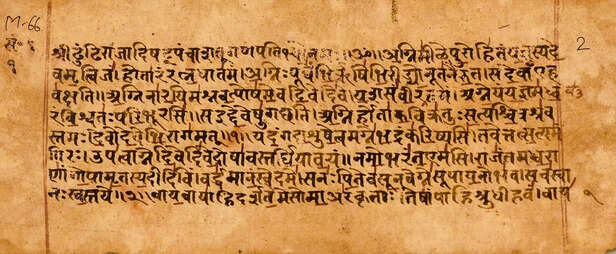 M-66
2
श्रीढुंढिराजादिषट्पंचाशत्गणपतिभ्योनमः॥ॐ॥अग्निमीळेपुरोहितंयज्ञस्यदे
वमृत्विजं।होतारंरत्नधातमं।अग्निःपूर्वेभिर्ऋषिभिरीड्योनूतनैरुत।सदेवाँएह
वक्षति।अग्निनारयिमश्नवत्पोषमेवदिवेदिवे।यशसंवीरवत्तमं।अग्नेयंयज्ञमध्व
रंविश्वतःपरिभूरसि।सइद्देवेषुगच्छति।अग्निर्होताकविक्रतुःसत्यश्चित्रश्रव
स्तमः।देवोदेवेभिरागमत्॥१॥यदंगदाशुषेत्वमग्नेभद्रंकरिष्यसि।तवेत्तत्सत्यमं
गिरः।उपत्वाग्नेदिवेदिवेदोषावस्तर्धियावयं॥नमोभरंतएमसि।राजंतमध्वरा
णांगोपामृतस्यदीदिविं।वर्द्धमानंस्वेदमे।सनःपितेवसूनवेग्नेसूपायनोभव।सचस्वा
नःस्वस्तये॥२॥वायवायाहिदर्शतेमेसोमाअरंकृताः।तेषांपाहिश्रुधीहवं।वाय